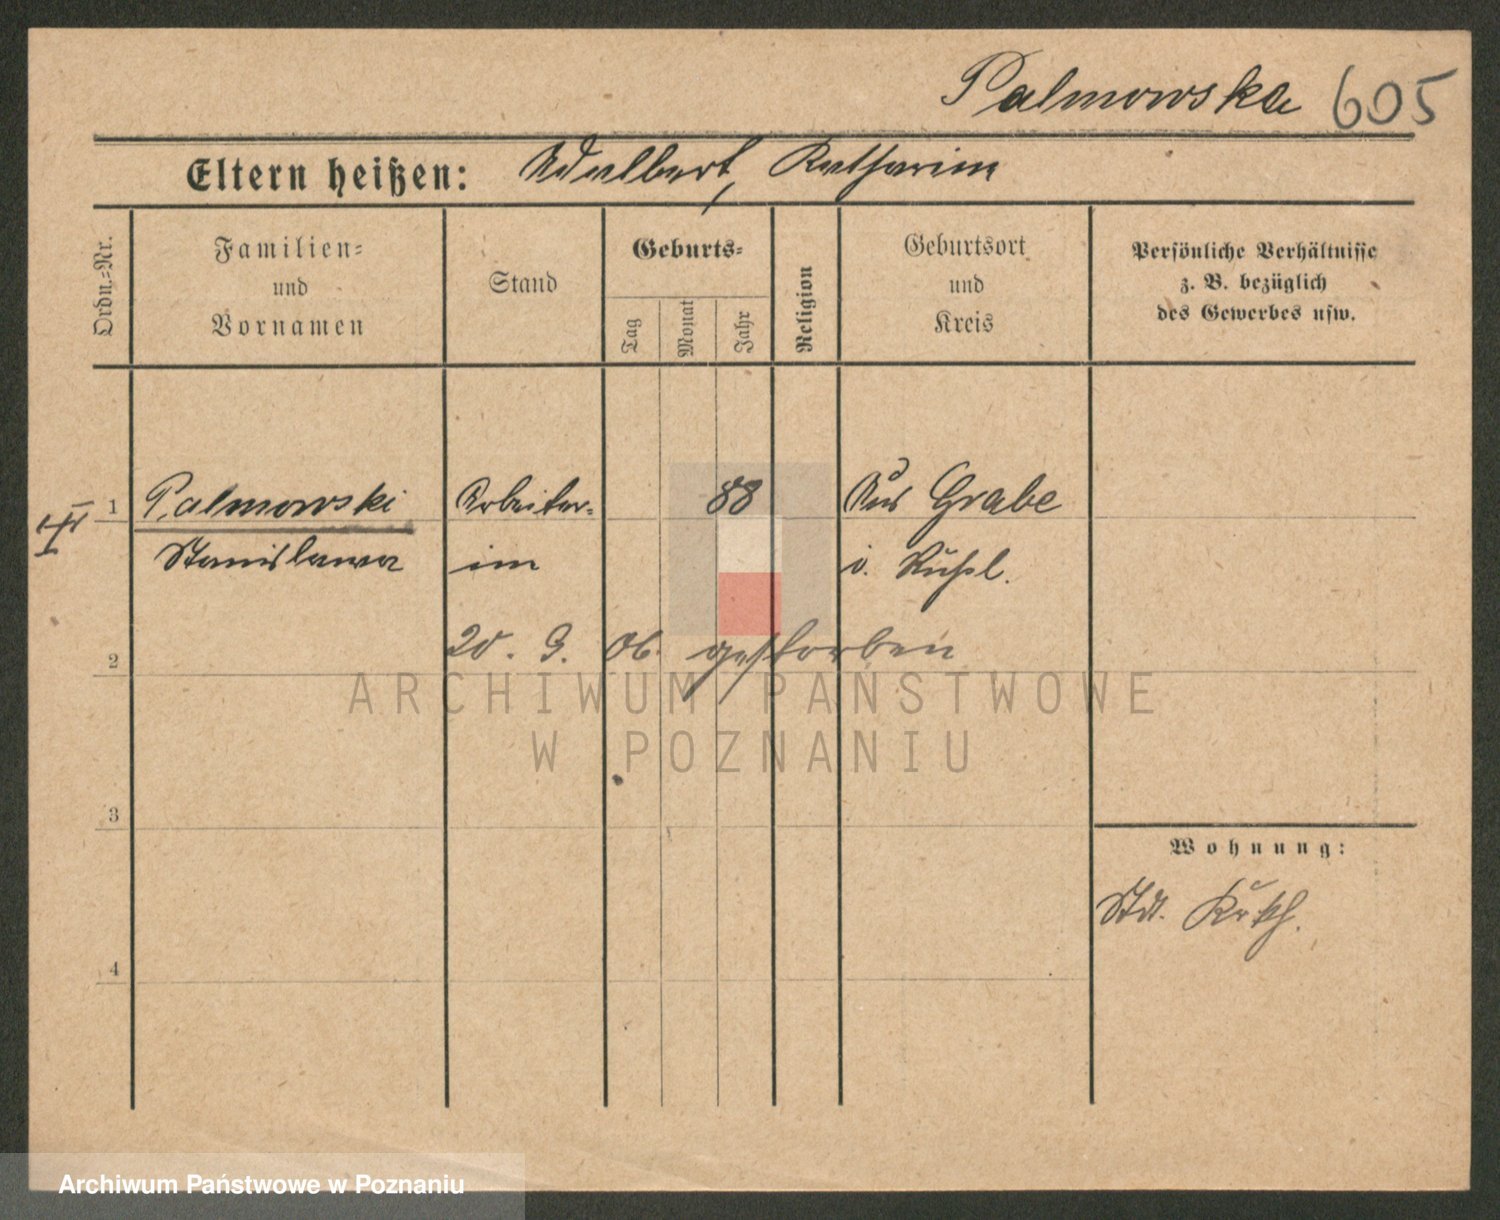 Palmowska 605
Eltern heißen: Adalbert, Katharina
Ordn.=Nr.
Familien=
und
Vornamen
Stand
Geburts=
Tag
Monat
Jahr
Religion
Geburtsort
und
Kreis
Persönliche Verhältnisse
z. B. bezüglich
des Gewerbes usw.
1 Palmowski Arbeiter= 88 Aus Grabe
Stanislawa in i. Rußl.
2 20. 9. 06. gestorben
ARCHIWUM PAŃSTWOWE
W POZNANIU
3
Wohnung:
4
Archiwum Państwowe w Poznaniu